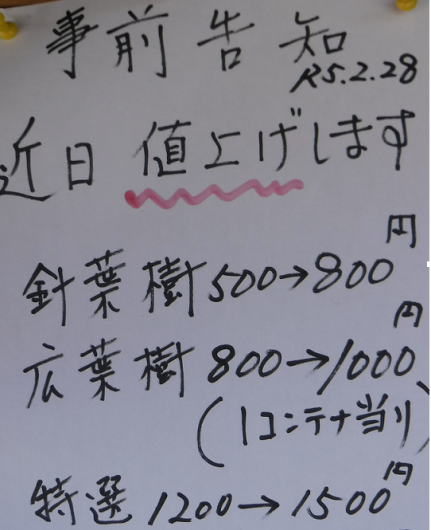 事前告知
R5.2.28
近日 値上げします
針葉樹 500→800円
広葉樹 800→1000円
(1コンテナ当り)
特選 1200→1500円